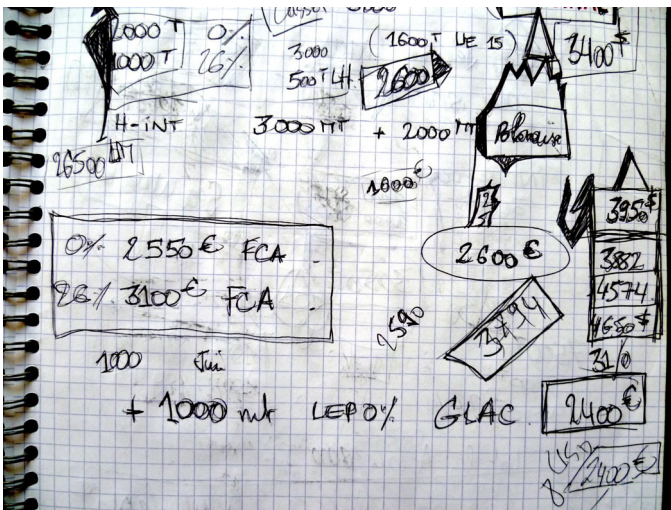 2000 T 0%
1000 T 26%
3000
500T LH.
(1600T UE 15)
2600
3400 $
H-INT 3000 MT + 2000 MT
Polonaise
26500
1600€
395 $
0% 2550 € FCA
26% 3100 € FCA
2600 €
3882
4574
4650 $
31/0
2590
3794
1000 Jui
+ 1000 mt LEP 0% GLAC.
2400 €
USD
/2400 €